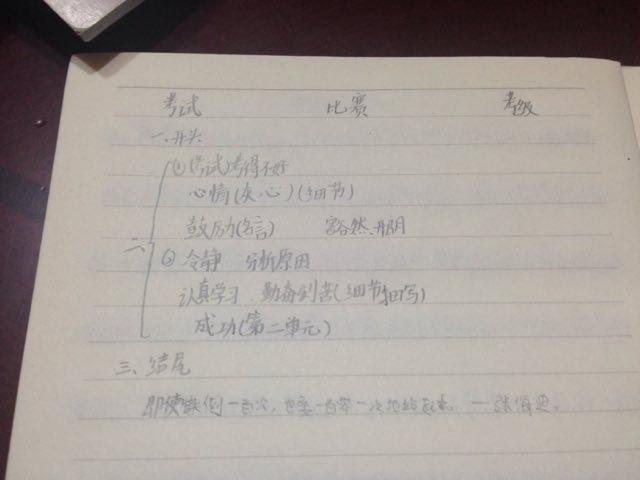 考试 比赛 考级
一、开头
二、
①(考试)考得不好
心情(灰心)(细节)
鼓励(名言) 豁然开阴
② 冷静 分析原因
认真学习 勤奋刻苦(细节描写)
成功(第二单元)
三、结尾
即使跌倒一百次,也要一百零一次地站起来。——张海迪。